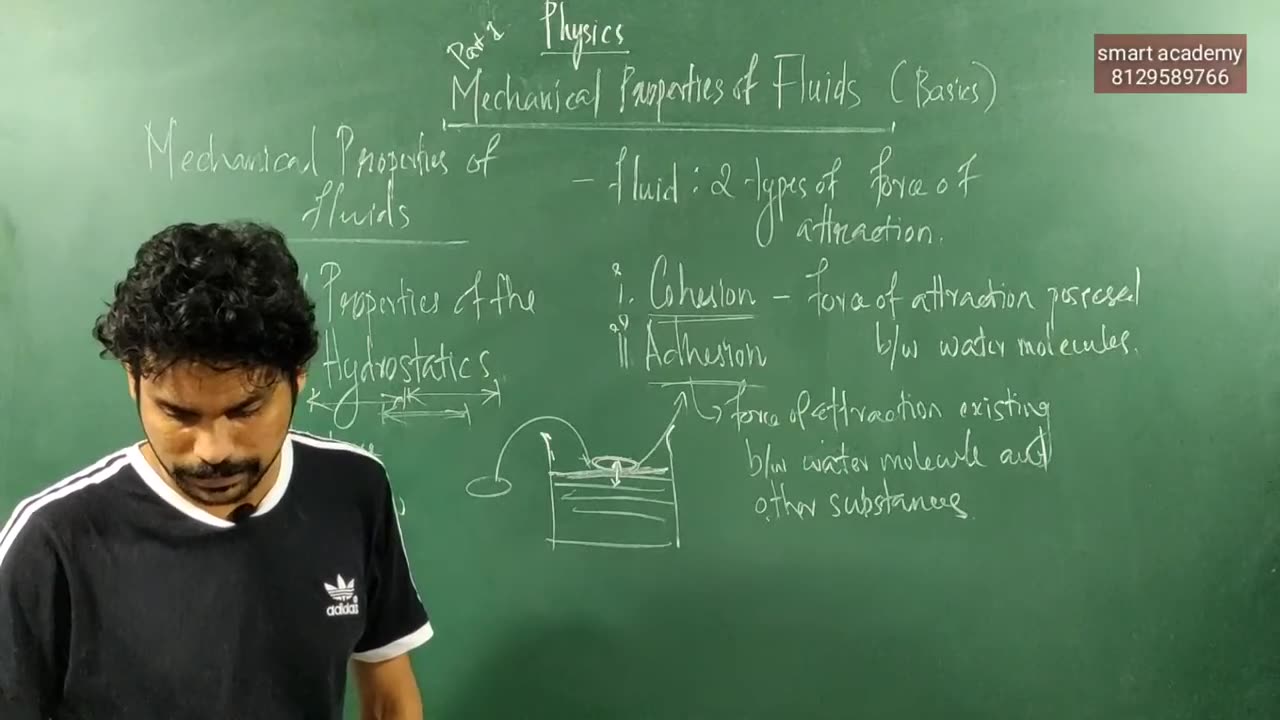 Part 1
Physics
Mechanical Properties of Fluids (Basics)
smart academy
8129589766
Mechanical Properties of
fluids
Properties of the
Hydrostatics
- fluid : 2 types of force of
attraction.
i. Cohesion - force of attraction possessed
b/w water molecules.
ii Adhesion
force of attraction existing
b/w water molecule and
other substances.
adidas